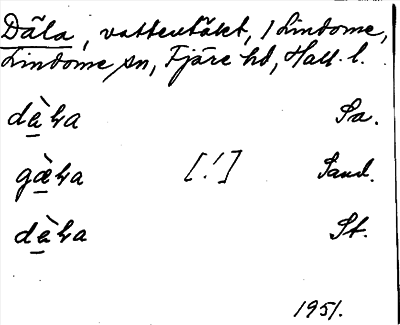 Däla, vattentäkt, i Lindome,
Lindome sn, Fjäre hd, Hall. l.
dɑ̀ɫa Sa.
gæ̀ɫa [!] Sand.
dɑ̀ɫa St.
1951.